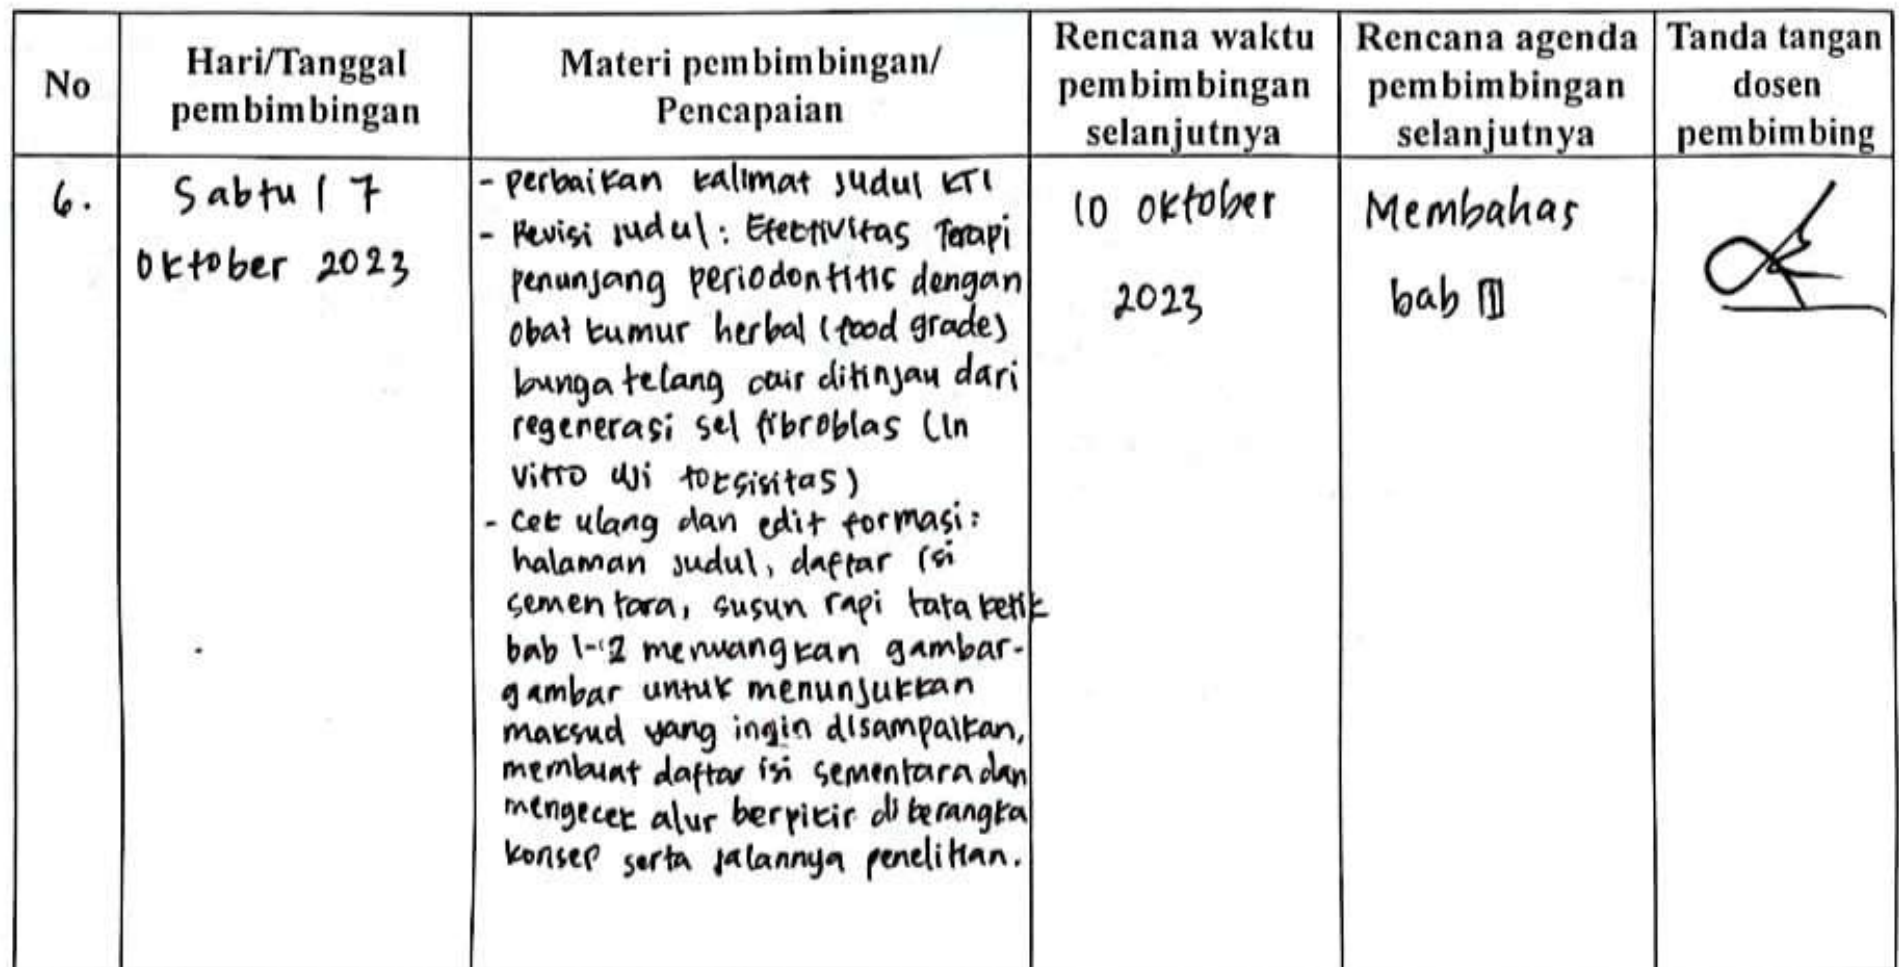 No
Hari/Tanggal
pembimbingan
Materi pembimbingan/
Pencapaian
Rencana waktu
pembimbingan
selanjutnya
Rencana agenda
pembimbingan
selanjutnya
Tanda tangan
dosen
pembimbing
6.
Sabtu / 7
Oktober 2023
- perbaikan kalimat judul KTI
- Revisi judul : Efektivitas Terapi
penunjang periodontitis dengan
obat kumur herbal (food grade)
bunga telang cair ditinjau dari
regenerasi sel fibroblas (In
Vitro Uji toksisitas)
- Cek ulang dan edit formasi :
halaman judul, daftar isi
sementara, susun rapi tata ketik
bab 1-2 menuangkan gambar-
gambar untuk menunjukkan
maksud yang ingin disampaikan,
membuat daftar isi sementara dan
mengecek alur berpikir di kerangka
konsep serta jalannya penelitian.
10 Oktober
2023
Membahas
bab